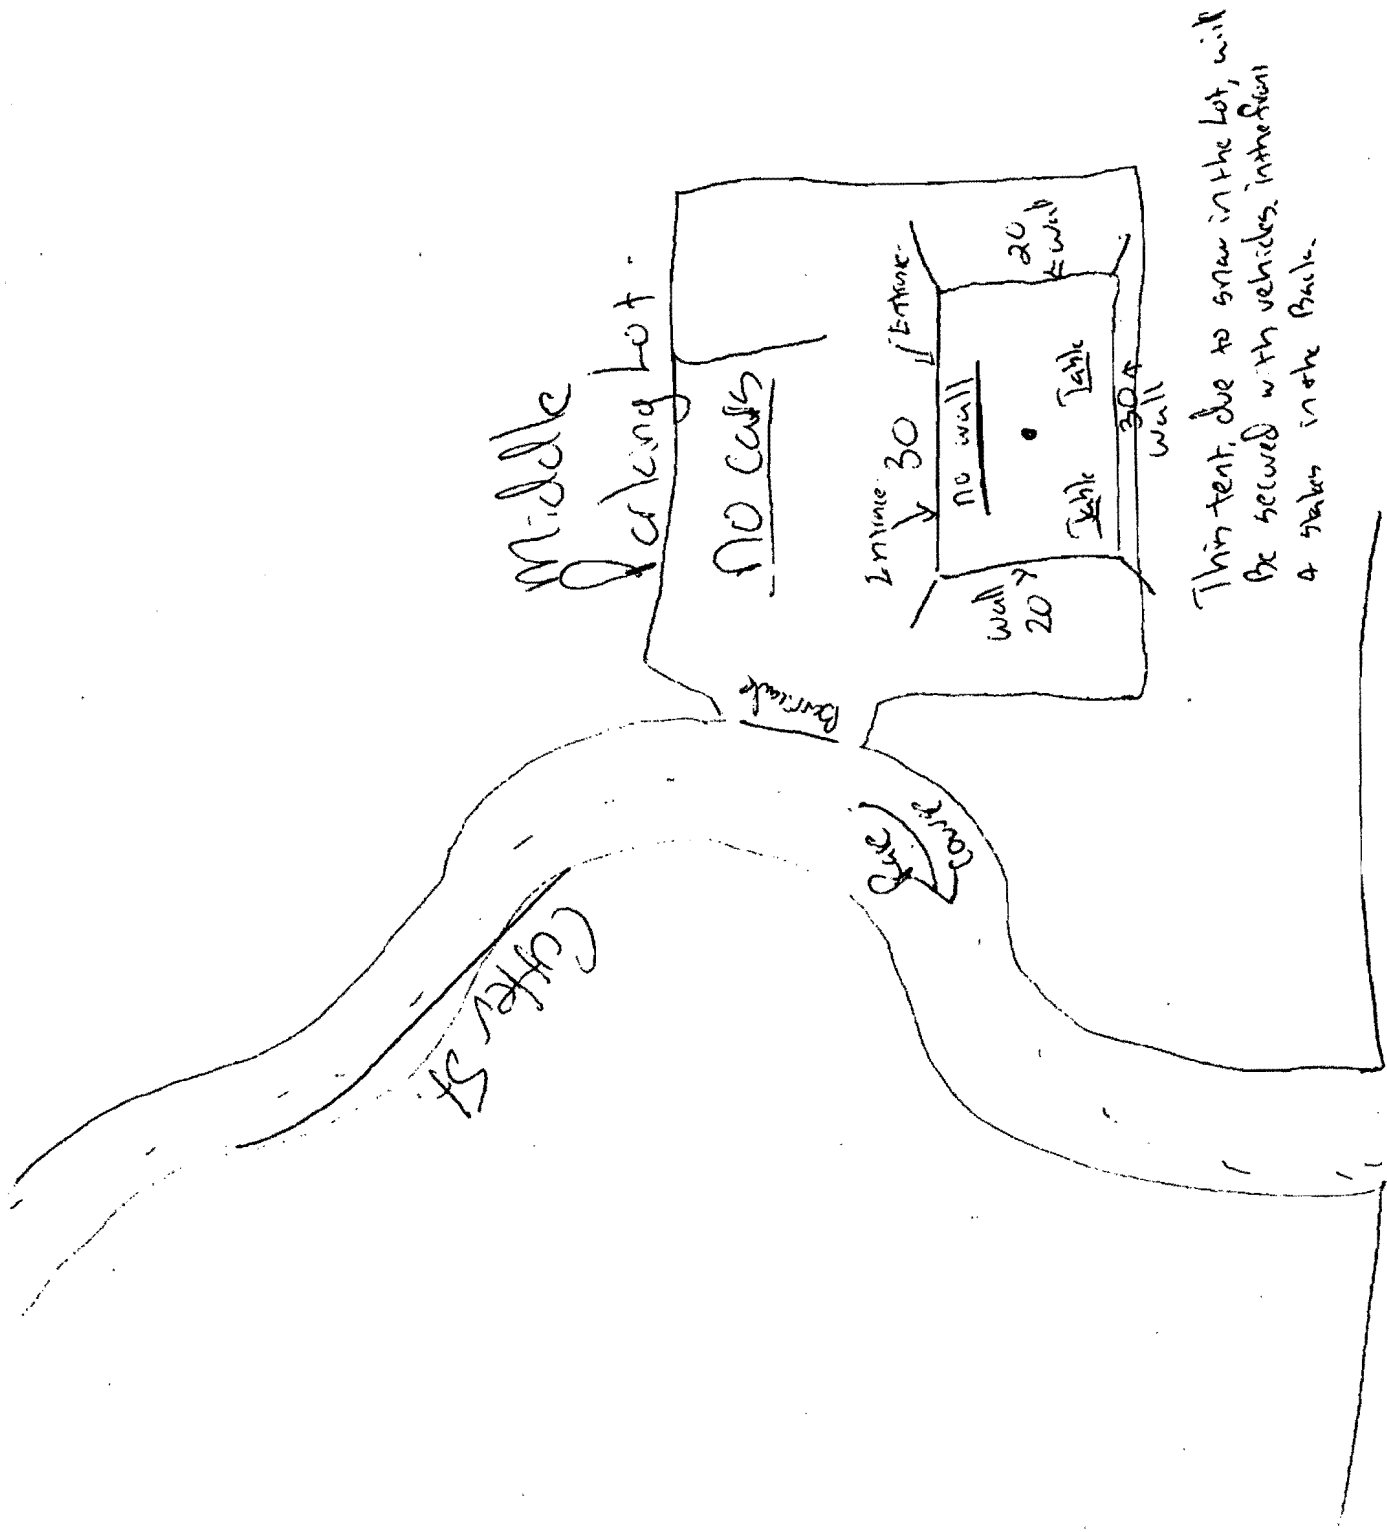 Middle
Parking Lot
no cars
Entrance
Entrance
30
no wall
20
wall
wall
20
Table
Table
30
wall
Barricade
Race
Course
Cutter St
This tent, due to snow in the Lot, will
Be secured with vehicles in the front
& stakes in the Back.